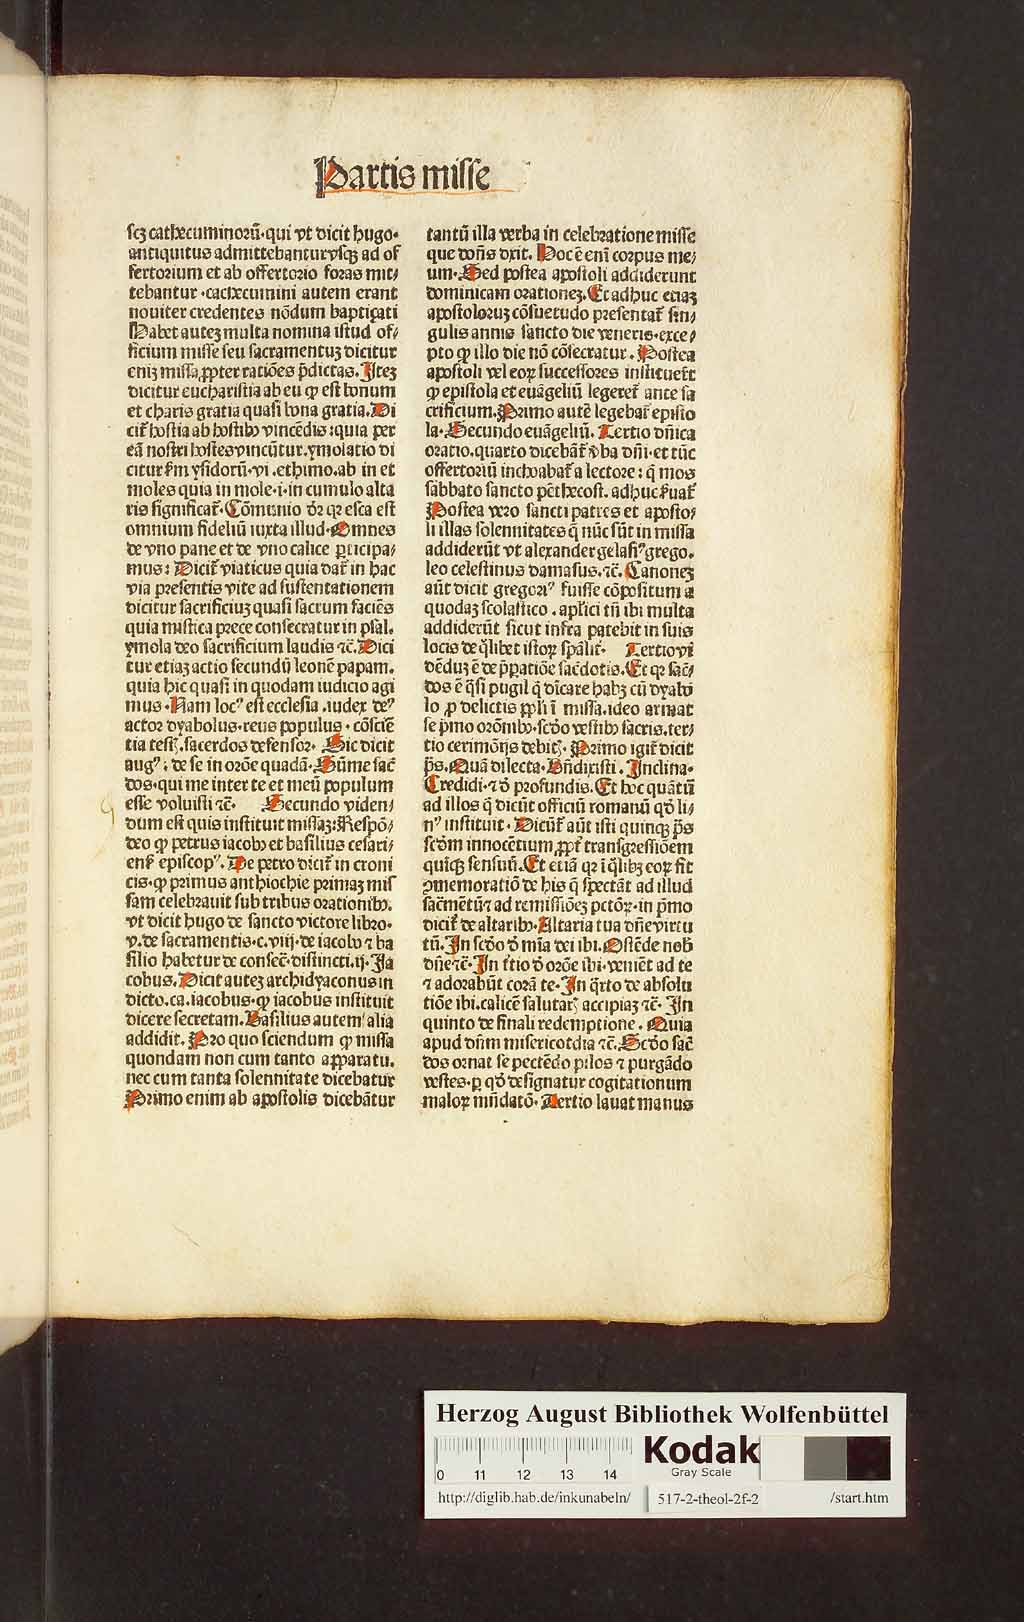 Partis misse
scꝫ cathecuminorū· qui vt dicit hugo·
antiquitus admittebantur vsqꝫ ad of
fertorium et ab offertorio foras mit/
tebantur · cathecumini autem erant
nouiter credentes nōdum baptiȝati
Habet auteȝ multa nomina istud of/
ficium misse seu sacramentuȝ dicitur
eniȝ missa ꝓpter ratiōes p̄dictas. Iteȝ
dicitur eucharistia ab eu ꝙ est bonum
et charis gratia quasi bona gratia. Di
cit᷑ hostia ab hostibꝫ vincēdis : quia per
eā nostri hostes vincūtur. ymolatio di
citur ẜm ysidorū· vi . ethimo. ab in et
moles quia in mole · i · in cumulo alta
ris significat᷑. Cōmunio dr̄ qꝛ esca est
omnium fideliū iuxta illud· Omnes
de vno pane et de vno calice ꝑticipa/
mus : Dicit᷑ viaticus quia dat᷑ in hac
via presentis vite ad sustentationem
dicitur sacrificiuȝ quasi sacrum faciēs
quia mistica prece consecratur in psal.
ymola deo sacrificium laudis ⁊c̄. Dici
tur etiaȝ actio secundū leonē papam.
quia hic quasi in quodam iudicio agi
mus · Nam locꝰ est ecclesia . iudex deꝰ
actor dyabolus · reus populus · cōsciē
tia testꝭ. sacerdos defensor· Sic dicit
augꝰ : de se in orōe quadā. Sūme sac̄
dos · qui me inter te et meū populum
esse voluisti ⁊c̄· Secundo viden/
dum est quis instituit missaȝ : Respō/
deo ꝙ petrus iacobꝫ et basilius cesari/
enẜ episcopꝰ. De petro dicit᷑ in croni
cis · ꝙ primus anthiochie primaȝ mis
sam celebrauit sub tribus orationibꝫ.
vt dicit hugo de sancto victore libro·
v. de sacramentis · c. viij · de iacobo ⁊ ba
silio habetur de consec̄· distincti. ij· Ia
cobus. Dicit auteȝ archidyaconus in
dicto. ca. iacobus · ꝙ iacobus instituit
dicere secretam. Basilius autem alia
addidit. Pro quo sciendum ꝙ missa
quondam non cum tanto apparatu.
nec cum tanta solennitate dicebatur
Primo enim ab apostolis dicebātur
tantū illa verba in celebratione misse
que dōns dxit. Hoc ē eni corpus me/
um· Sed postea apostoli addiderunt
dominicam orationeȝ. Et adhuc etiaȝ
apostoloruȝ cōsuetudo presentat᷑ sin/
gulis annis sancto die veneris · exce/
pto ꝙ illo die nō cōsecratur . Postea
apostoli vel eoꝝ successores instituer̄t
ꝙ epistola et euāgeliū legeret᷑ ante sa
crificium. Primo autē legebat᷑ episto
la· Secundo euāgeliū. Tertio dn̄ica
oratio. quarto dicebāt᷑ v̓ba dn̄i· et tūc
offertoriū inchoabat᷑ a lectore : q̄ mos
sabbato sancto pēthecost. adhuc ẜuat᷑
Postea vero sancti patres et aposto/
li illas solennitates q̄ nūc sūt in missa
addiderūt vt alexander gelasiꝰ grego.
leo celestinus damasus. ⁊c̄. Canoneȝ
aūt dicit gregoriꝰ fuisse cōpositum a
quodaȝ scolastico . aplici tn̄ ibi multa
addiderūt sicut infra patebit in suis
locis de q̄libet istoꝝ sp̄alit᷑· Tertio vi
dēduȝ ē de p̄paratiōe sac̄dotis. Et qꝛ sac̄/
dos ē q̄si pugil q̇ dīcare habꝫ cū dyabo
lo ꝓ delictis ppl̄i ī missa. ideo armat
se p̄mo orōnibꝫ· scd̄o vestibꝫ sacris. ter/
tio cerimōijs debitꝭ. Primo igit᷑ dicit
p̄s. Quā dilecta· Bn̄dixisti. Inclina·
Credidi· ⁊ d̓ profundis. Et hoc quātū
ad illos q̇ dicūt officiū romanū qd̓ li/
nꝰ instituit · Dicūt᷑ aūt isti quinqꝫ p̄s
scd̄m innocētium ꝓpt᷑ transgressiōem
quīqꝫ sensuū. Et etiā qꝛ ī q̄libꝫ eoꝝ fit
ꝯmemoratiō de his q̄ spectāt ad illud
sacm̄etū ⁊ ad remissiōeȝ pctōꝝ· in p̄mo
dicit᷑ de altaribꝫ· Altaria tua dn̄e virtu
tū. In scd̓o d̓ mīa dei ibi. Ostēde nob̓
dn̄e ⁊c̄· In t̄tio d̓ orōe ibi· veniēt ad te
⁊ adorabūt corā te· In q̄rto de absolu
tiōe ibi. calicē salutarꝭ accipiaȝ ⁊c̄. In
quinto de finali redemptione . Quia
apud dn̄m misericotdia ⁊c̄. Scd̓o sac̄
dos ornat se pectēdo pilos ⁊ purgādo
vestes· ꝑ qd̓ designatur cogitationum
maloꝝ mūdatō· Tertio lauat manus
Herzog August Bibliothek Wolfenbüttel
0 11 12 13 14
Kodak
Gray Scale
http://diglib.hab.de/inkunabeln/ 517-2-theol-2f-2 /start.htm